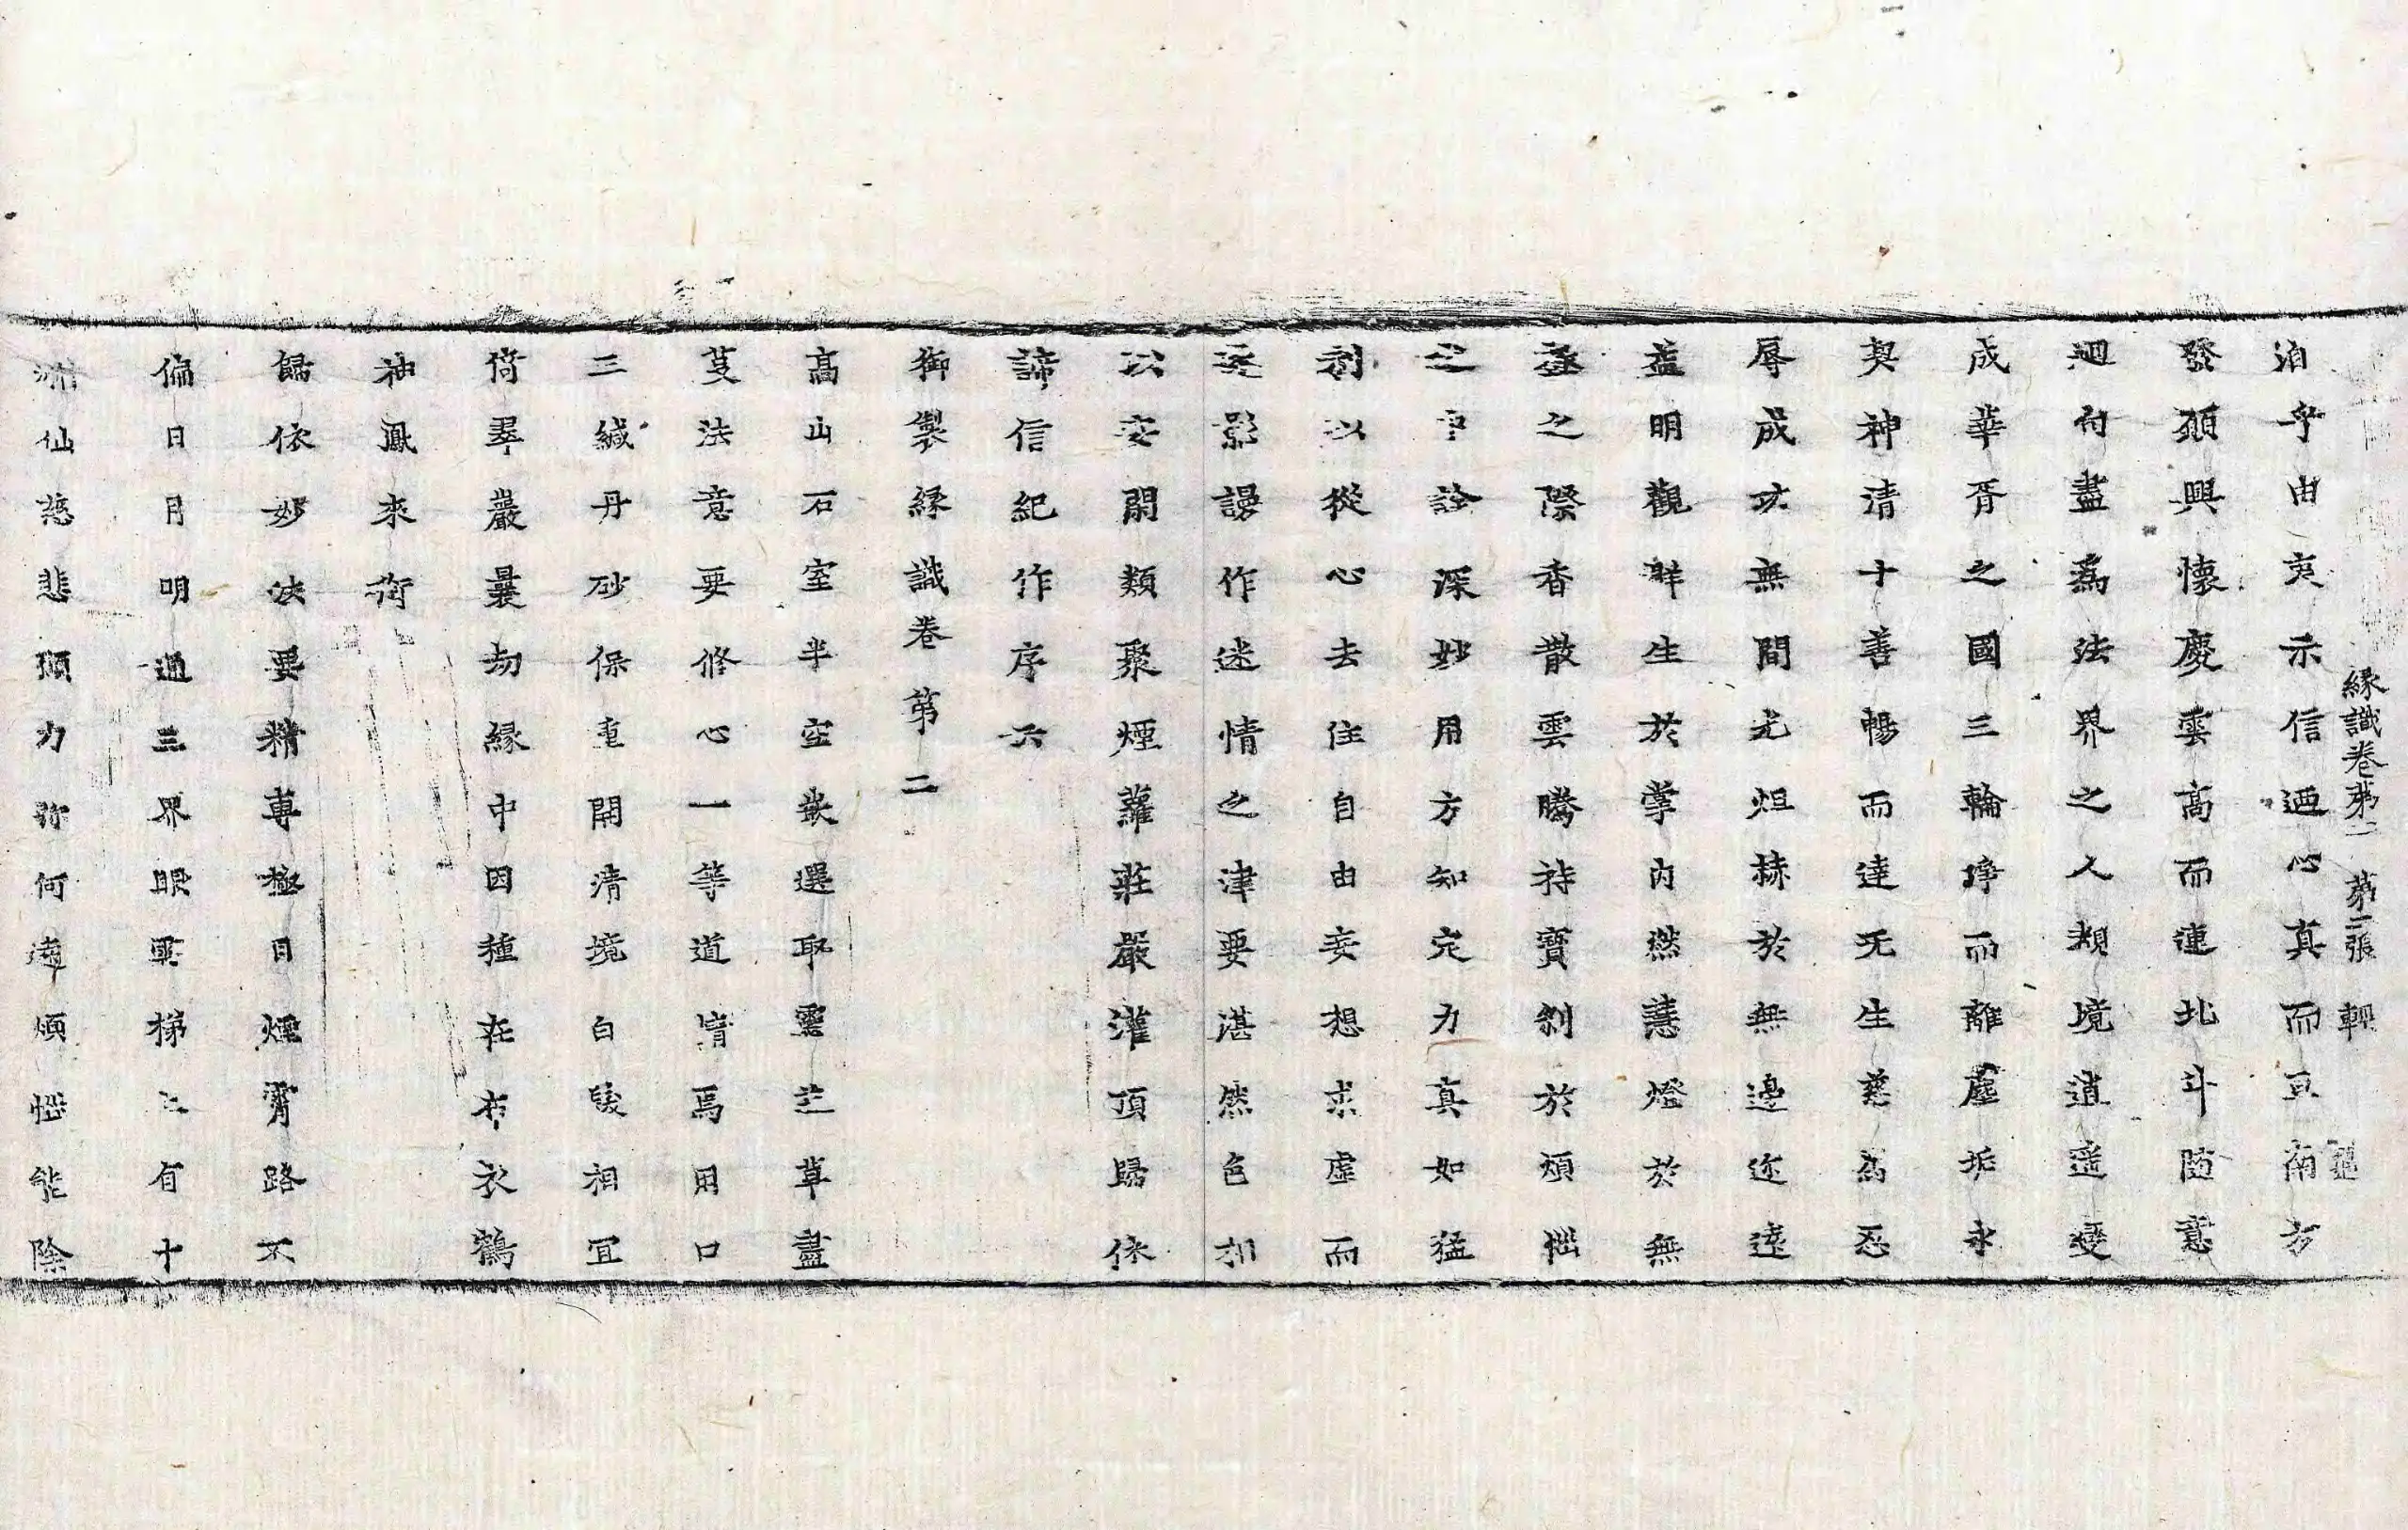 緣識卷第二 第二張 輕
泊乎由夷示信迺心真而亘南方
發願興懷慶雲高而連北斗隨意
迴向盡為法界之人類境逍遥變
成華胥之國三輪淨而離塵垢永
契神清十善暢而達无生慈為忍
辱成功無間光烜赫於無邊迩遠
盖明觀群生於掌內燃慧燈於無
盡之際香散雲騰持寶剎於煩惱
之中詮深妙用方知定力真如猛
利以從心去住自由妄想求虛而
逐影謾作迷情之津要湛然色相
以安閑類聚煙蘿莊嚴灌頂歸依
諦信紀作序六
御製緣識卷第二
高山石室半空嵌選取靈芝草盡
芟法意要修心一等道眉焉用口
三緘丹砂保重開清境白髮相宜
倚翠巖曩劫緣中因種在布衣鶴
袖鳳來銜
歸依妙法要精專極目煙霄路不
偏日月明通三界眼雲梯上有十
洲仙慈悲願力弥何遠煩惱能除